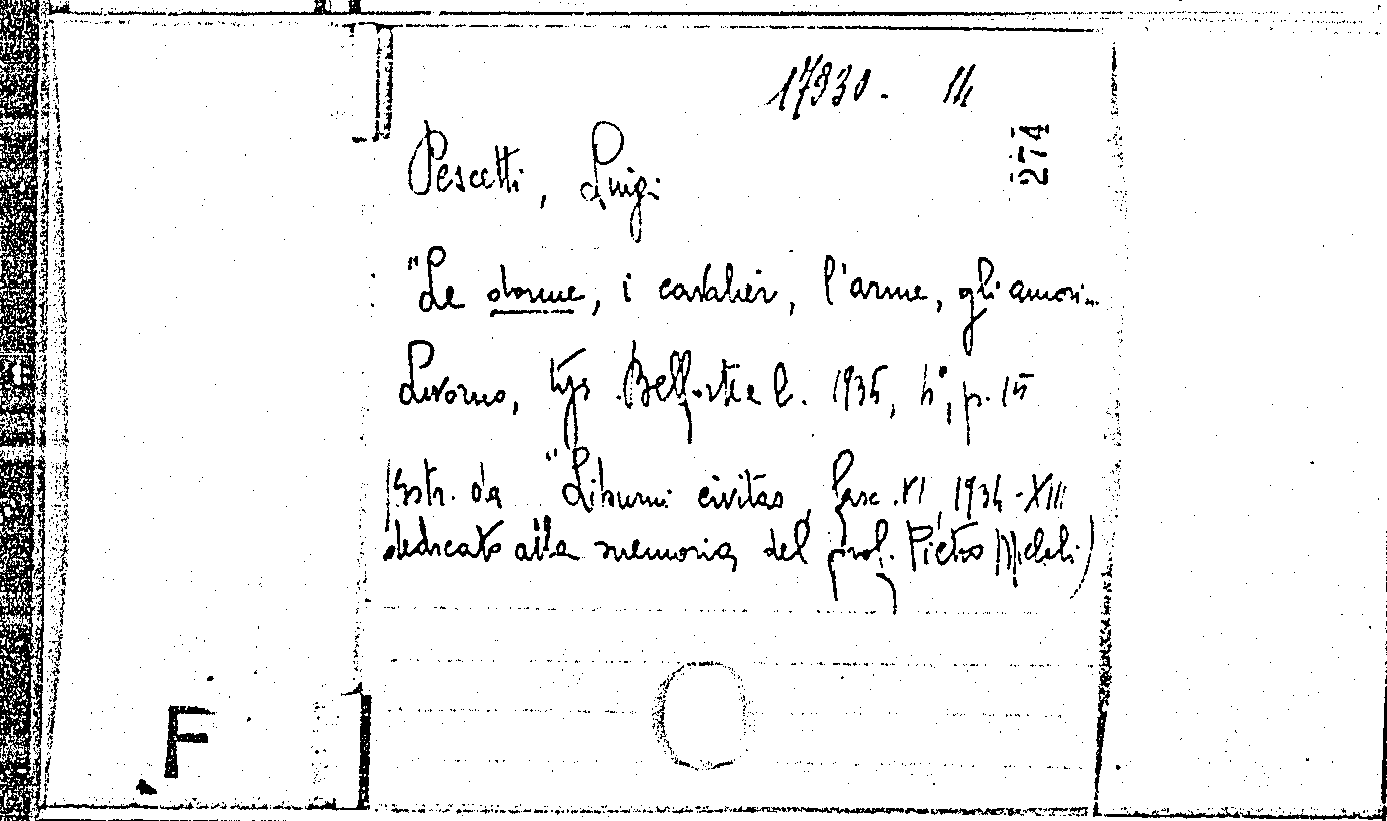 17330. 14
274
Pescetti, Luigi
"Le donne, i cavalier, l'arme, gli amori...
Livorno, typ. Belforte e C. 1934, 4°, p. 15
(Estr. da "Liburni civitas, fasc. VI, 1934-XIII
dedicato alla memoria del prof. Pietro Micheli)
F